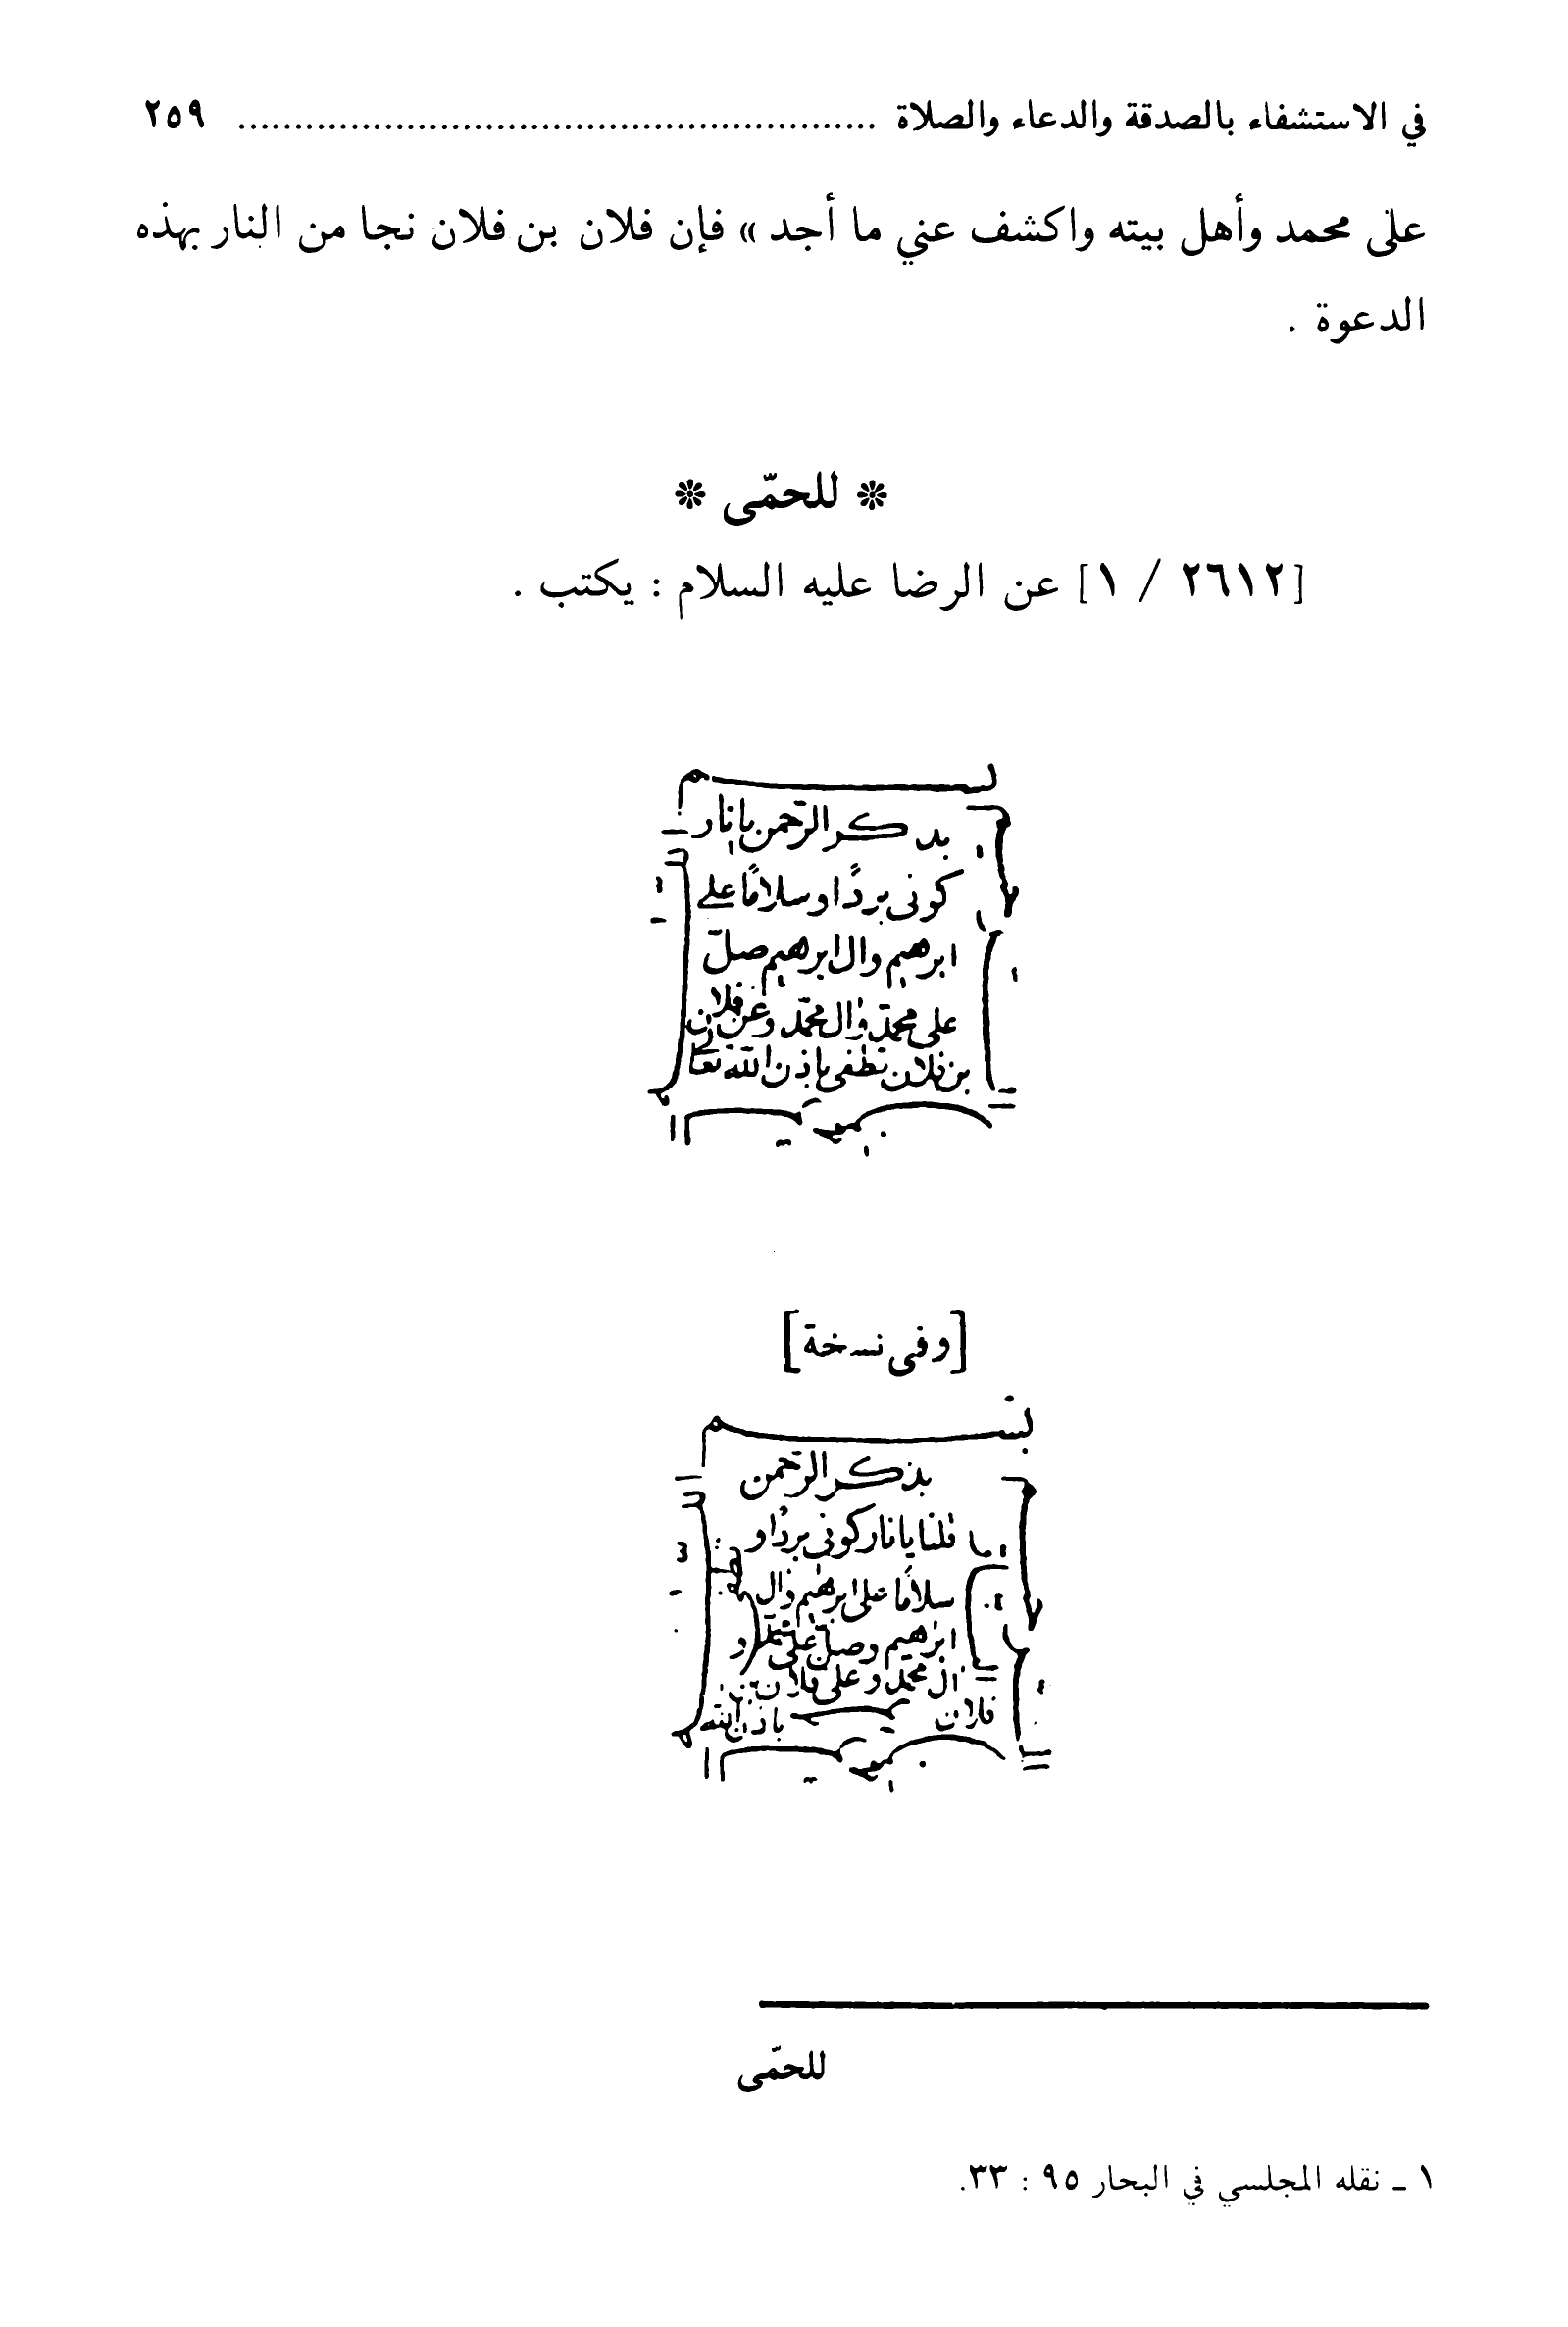 في الاستشفاء بالصدقة والدعاء والصلاة ........................................................ ٢٥٩
على محمد وأهل بيته واكشف عني ما أجد » فإن فلان بن فلان نجا من النار بهذه
الدعوة .
* للحمّى *
[٢٦١٢ / ١] عن الرضا عليه السلام : يكتب .
بسم
بد كر الرّحمن يا نار
كونى بردًا وسلامًا على
ابرهيم وال ابرهيم صلّ
على محمّد وال محمّد وعن فلان
بن فلان تطفى باذن الله تعالى
[وفى نسخة]
بسم
بذكر الرّحمن
قلنا يا نار كونى بردًا و
سلامًا على ابرهيم وال
ابرهيم وصلّ على محمّد و
ال محمد وعلى فلان بن
فلان باذن الله
للحمّى
١ ـ نقله المجلسي في البحار ٩٥ : ٣٣.